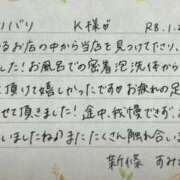 リバリ K様♡ R8.1.2
るお店の中から当店を見つけて下さり、
した!お風呂での密着泡洗体から
って頂けて嬉しかったです♡お疲れの足
せて頂きました!途中、我慢できず、お
いましたね♪またたくさん触れ合いま
新條 すみ